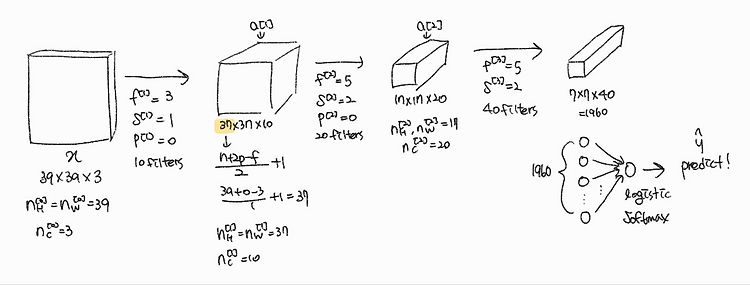 x
39×39×3
n_H^[0]=n_W^[0]=39
n_C^[0]=3
f^[1]=3
s^[1]=1
p^[1]=0
10 filters
a^[1]
37×37×10
n+2p-f/2 +1
39+0-3/1 +1=37
n_H^[1]=n_W^[1]=37
n_C^[1]=10
f^[2]=5
s^[2]=2
p^[2]=0
20 filters
a^[2]
17×17×20
n_H^[2], n_W^[2]=17
n_C^[2]=20
f^[3]=5
s^[3]=2
40 filters
7×7×40
=1960
1960
logistic
softmax
ŷ
predict!